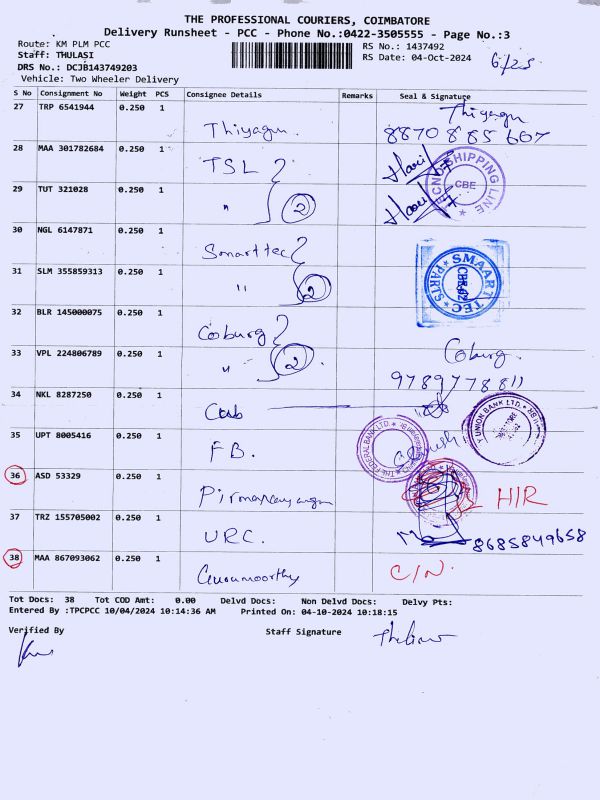 THE PROFESSIONAL COURIERS, COIMBATORE
Delivery Runsheet - PCC - Phone No.:0422-3505555 - Page No.:3
Route: KM PLM PCC
Staff: THULASI
DRS No.: DCJB143749203
Vehicle: Two Wheeler Delivery
RS No.: 1437492
RS Date: 04-Oct-2024
S No Consignment No Weight PCS Consignee Details Remarks Seal & Signature
27 TRP 6541944 0.250 1 Thiyagu. Thiyagu
8870 885 607
28 MAA 301782684 0.250 1 TSL
SHIPPING LINE
CBE
29 TUT 321028 0.250 1 " 2
30 NGL 6147871 0.250 1 Smart tec
SMAART TEC
PARTS
31 SLM 355859313 0.250 1 " 2
32 BLR 145000075 0.250 1 Coburg
33 VPL 224806789 0.250 1 " 2 Coburg.
9789778811
34 NKL 8287250 0.250 1 Cub
UNION BANK LTD.
35 UPT 8005416 0.250 1 FB.
THE FEDERAL BANK LTD.
36 ASD 53329 0.250 1 HIR
37 TRZ 155705002 0.250 1 URC. 8685849658
38 MAA 867093062 0.250 1 Gurumoorthy C/N.
Tot Docs: 38 Tot COD Amt: 0.00 Delvd Docs: Non Delvd Docs: Delvy Pts:
Entered By :TPCPCC 10/04/2024 10:14:36 AM Printed On: 04-10-2024 10:18:15
Verified By Staff Signature